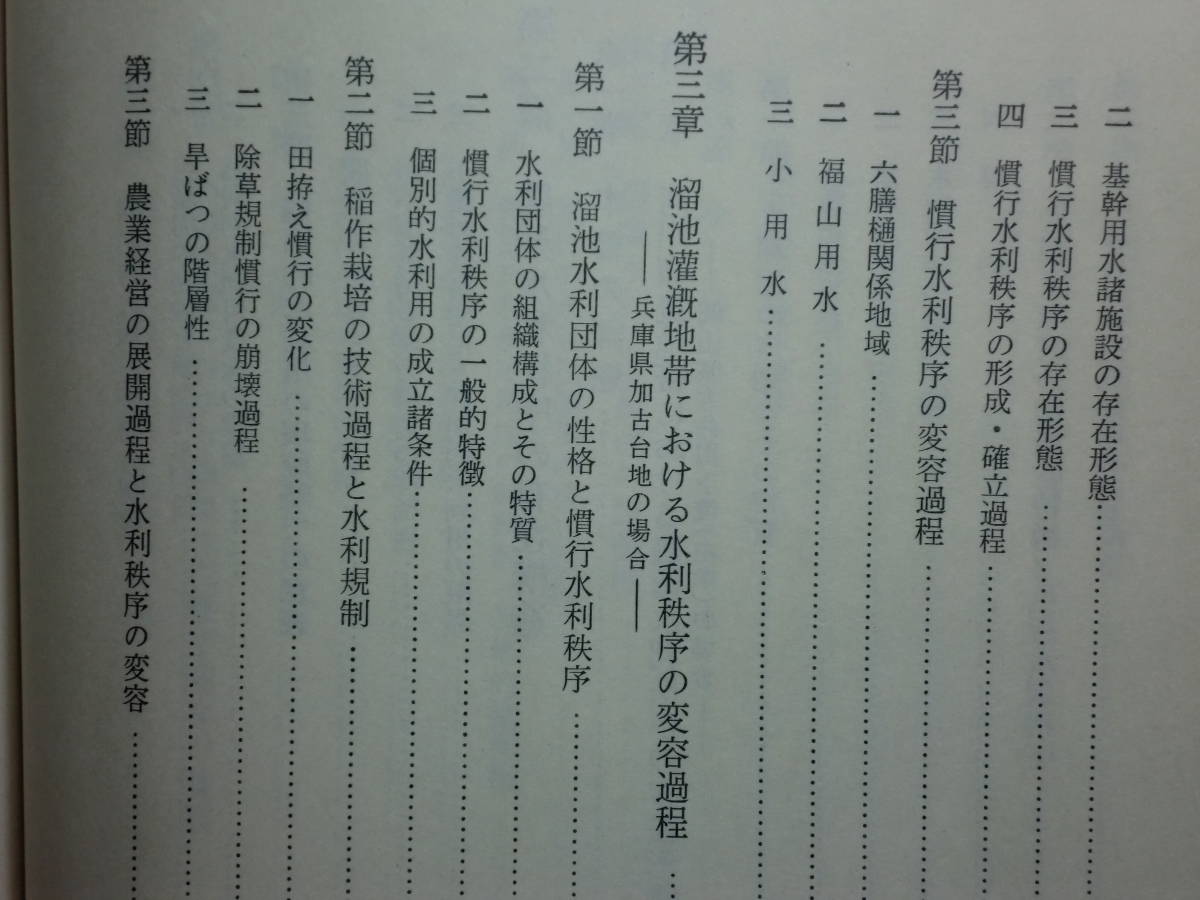 二 基幹用水諸施設の存在形態……………………
三 慣行水利秩序の存在形態……………………
四 慣行水利秩序の形成・確立過程……………………
第三節 慣行水利秩序の変容過程……………………
一 六膳樋関係地域……………………
二 福山用水……………………
三 小用水……………………
第三章 溜池灌漑地帯における水利秩序の変容過程……
――兵庫県加古台地の場合――
第一節 溜池水利団体の性格と慣行水利秩序……………
一 水利団体の組織構成とその特質……………………
二 慣行水利秩序の一般的特徴……………………
三 個別的水利用の成立諸条件……………………
第二節 稲作栽培の技術過程と水利規制……………………
一 田拵え慣行の変化……………………
二 除草規制慣行の崩壊過程……………………
三 旱ばつの階層性……………………
第三節 農業経営の展開過程と水利秩序の変容……………